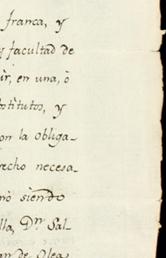 franca, y
y facultad de
ir, en una, ò
stitutos, y
on la obliga-
echo necesa-
nò siendo
lla, Dn. Sal-
an de Oleas